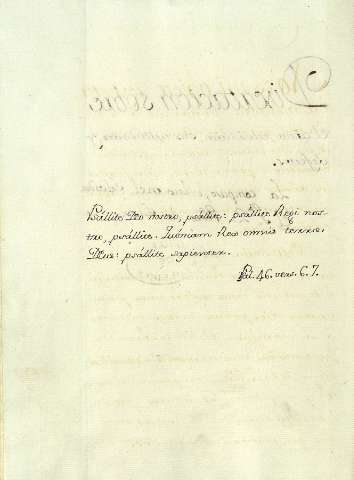 Psállite Deo nostro, psállite: psállite Regi nos-
tro, psállite. Quóniam Rex omnis terræ
Deus: psállite sapienter.
Psal. 46. vers. 6. 7.